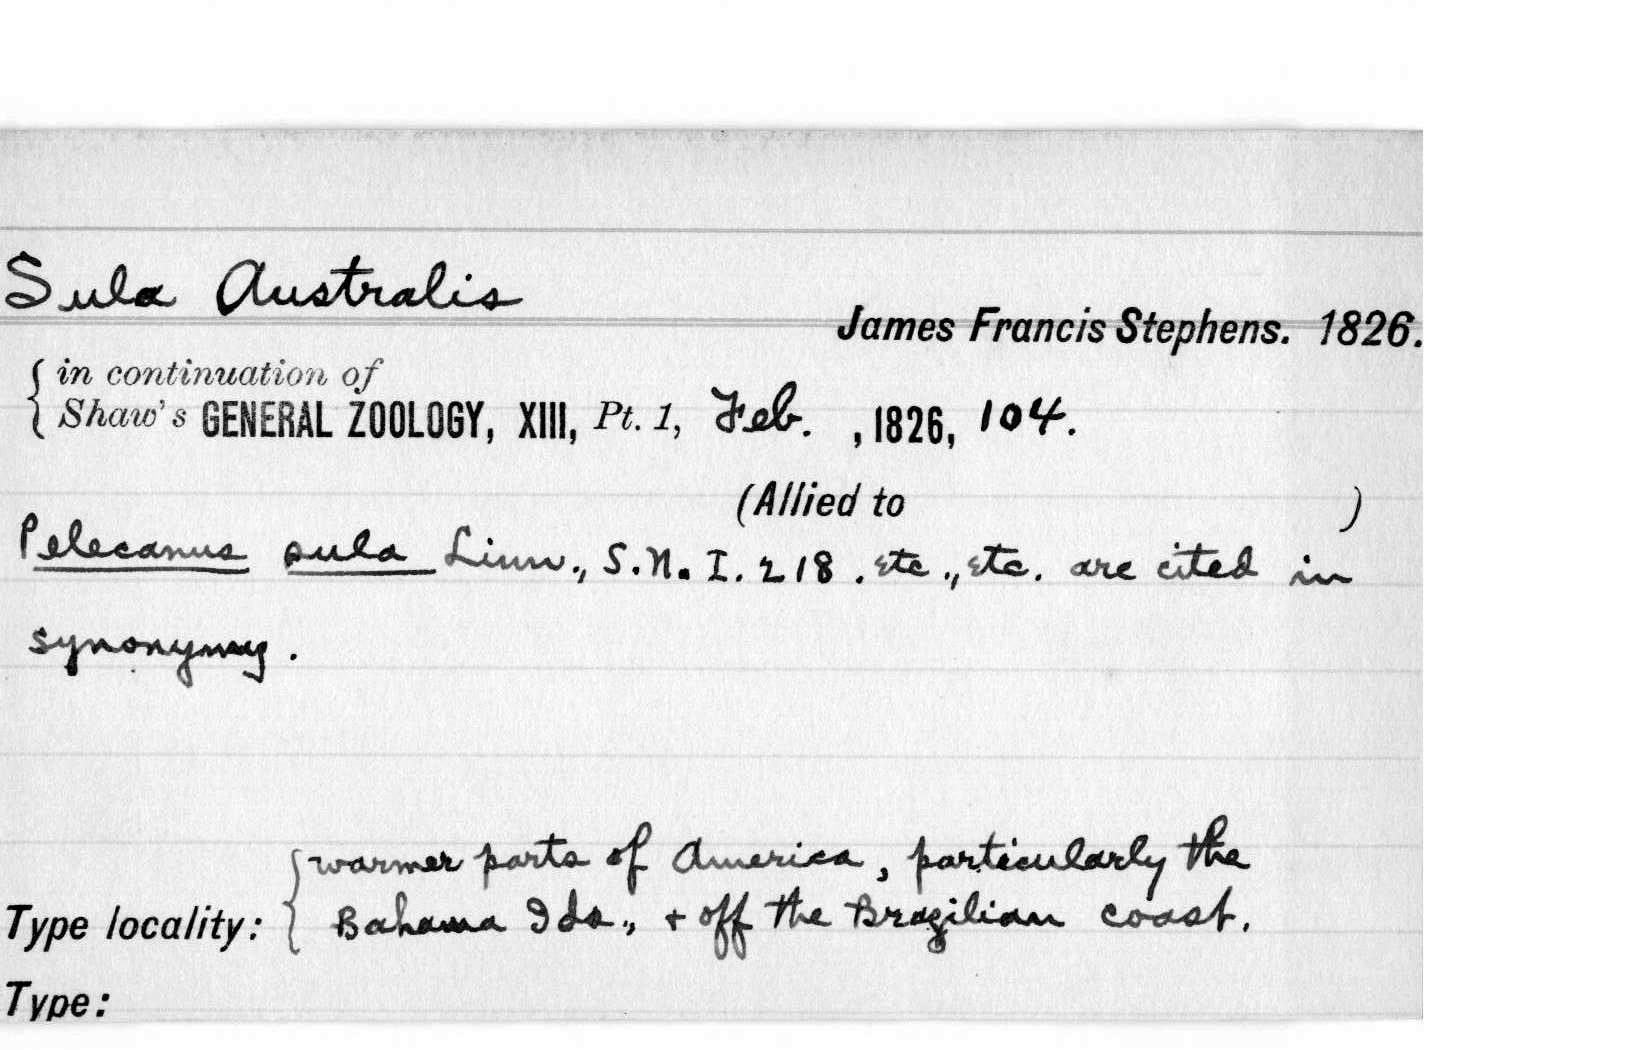 Sula Australis
James Francis Stephens. 1826.
in continuation of
Shaw's GENERAL ZOOLOGY, XIII, Pt. 1, Feb. , 1826, 104.
(Allied to )
Pelecanus sula Linn., S.N. I. 218. etc., etc. are cited in
synonymy.
warmer parts of America, particularly the
Type locality: Bahama Ids., + off the Brazilian coast.
Type: